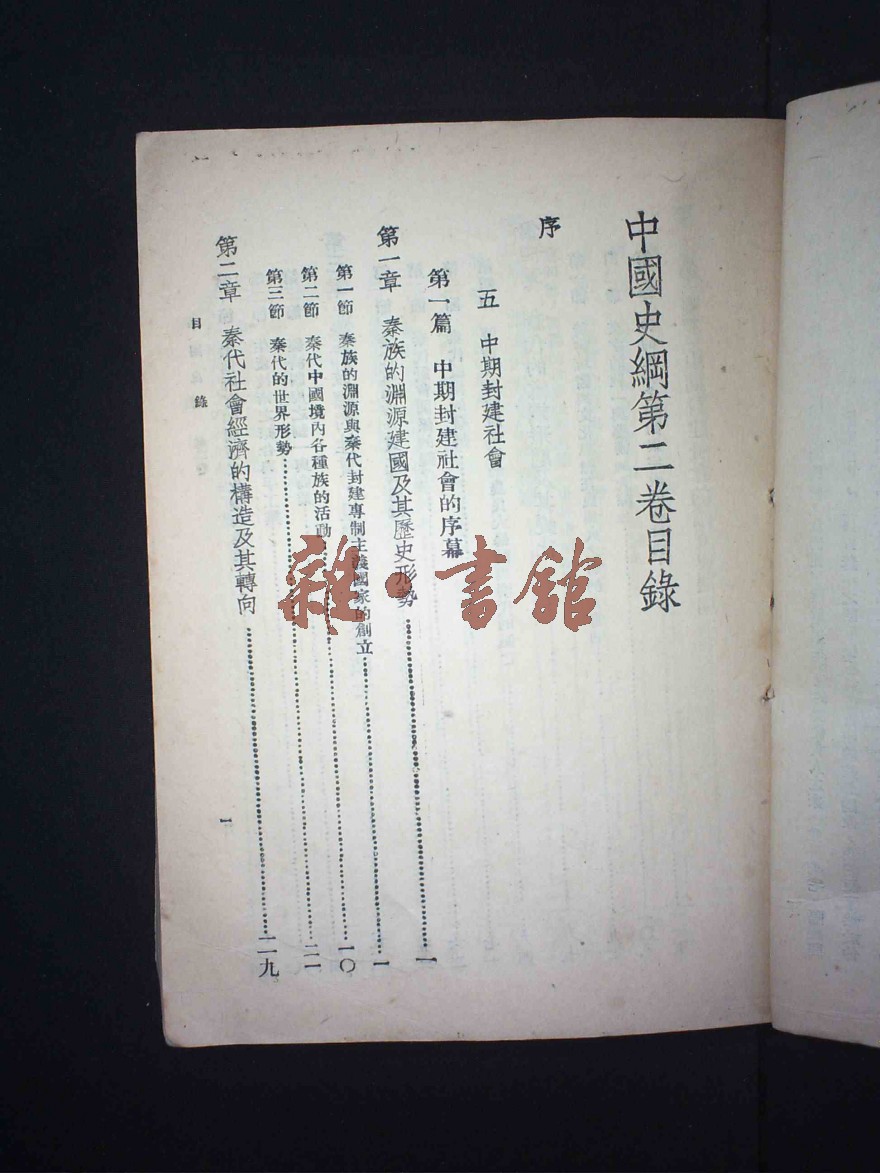 中國史綱第二卷目錄
序
五 中期封建社會
第一篇 中期封建社會的序幕
第一章 秦族的淵源建國及其歷史形勢……一
第一節 秦族的淵源與秦代封建專制主義國家的創立……一
第二節 秦代中國境內各種族的活動……一〇
第三節 秦代的世界形勢……二一
第二章 秦代社會經濟的構造及其轉向……二九
目錄
一
雜·書館